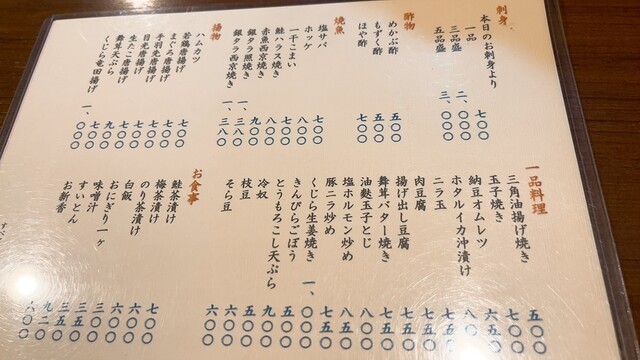 刺身
本日のお刺身より
一品 七〇〇
三品盛 二、〇〇〇
五品盛 三、〇〇〇
酢物
めかぶ酢 五〇〇
もずく酢 五〇〇
ほや酢 七〇〇
焼魚
塩サバ 七〇〇
ホッケ 八〇〇
一干こまい 七〇〇
鮭ハラス焼き 八〇〇
赤魚西京焼き 九〇〇
銀タラ照焼き 一、三八〇
銀タラ西京焼き 一、三八〇
揚物
ハムカツ 七〇〇
若鶏唐揚げ 七〇〇
まぐろ唐揚げ 七〇〇
手羽先唐揚げ 七〇〇
目光唐揚げ 七〇〇
生たこ唐揚げ 九〇〇
舞茸天ぷら 七〇〇
くじら竜田揚げ 一、〇〇〇
一品料理
三角油揚げ焼き 五〇〇
玉子焼き 七五〇
納豆オムレツ 六五〇
ホタルイカ沖漬け 八〇〇
ニラ玉 七五〇
肉豆腐 七五〇
揚げ出し豆腐 七五〇
舞茸バター焼き 七五〇
油麩玉子とじ 八〇〇
塩ホルモン炒め 八五〇
豚ニラ炒め 七五〇
くじら生姜焼き 一、〇〇〇
きんぴらごぼう 五〇〇
とうもろこし天ぷら 九〇〇
冷奴 五〇〇
枝豆 六〇〇
そら豆 六〇〇
お食事
鮭茶漬け 七〇〇
梅茶漬け 六〇〇
のり茶漬け 六〇〇
白飯 三〇〇
おにぎり一ヶ 三五〇
味噌汁 三五〇
すいとん 九二〇
お新香 六〇〇